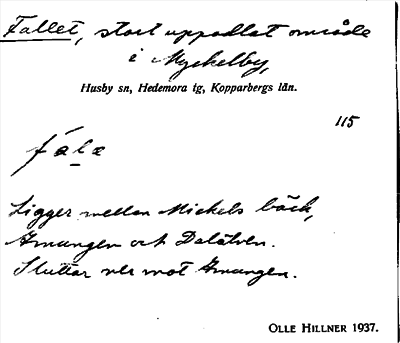 Fallet, stort uppodlat område
i Myckelby,
Husby sn, Hedemora tg, Kopparbergs län.
115
fálæ
Ligger mellan Mickels bäck,
Amungen och Dalälven.
Sluttar ner mot Amungen.
OLLE HILLNER 1937.